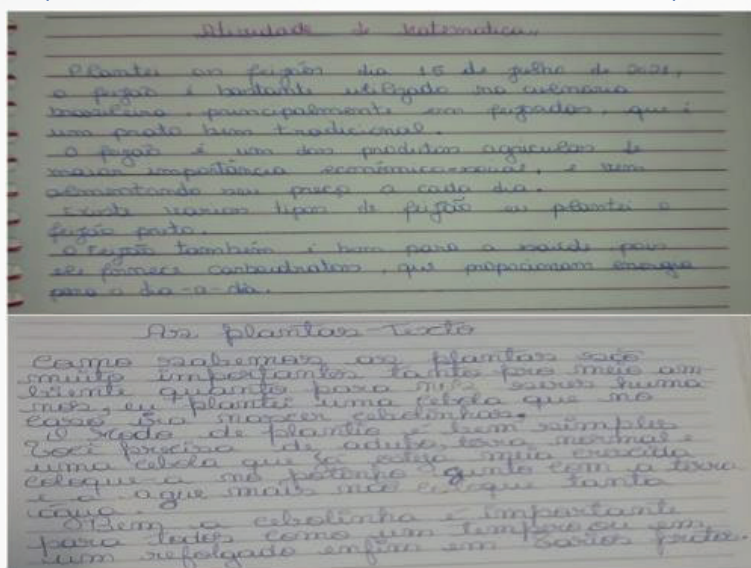 Atividade de Matematica,,
Plantei os feijões dia 15 de julho de 2021,
o feijão é bastante utilizado na culinaria
brasileira, principalmente em feijoadas, que é
um prato bem tradicional.
O feijão é um dos produtos agriculas de
maior importância econômica e social, e vem
almentando seu preço a cada dia.
Existe varios tipos de feijão eu plantei o
feijão preto.
O feijão também é bom para a saúde pois
ele fornece carboidratos, que propocionam energia
para o dia-a-dia.
As plantas-Texto
Como sabemos as plantas são
muito importantes tanto pro meio am-
biente quanto para nós seres huma-
nos, eu plantei uma cebola que no
caso ira nascer cebolinhas.
O modo de plantio é bem simples
você precisa de adubo, terra normal e
uma cebola que já esteja meia crescida
coloque-a no potinho junto com a terra
e a ague mais não coloque tanta
água.
Bem a cebolinha é importante
para todos como um tempero ou em
um refolgado enfim em varios pratos.